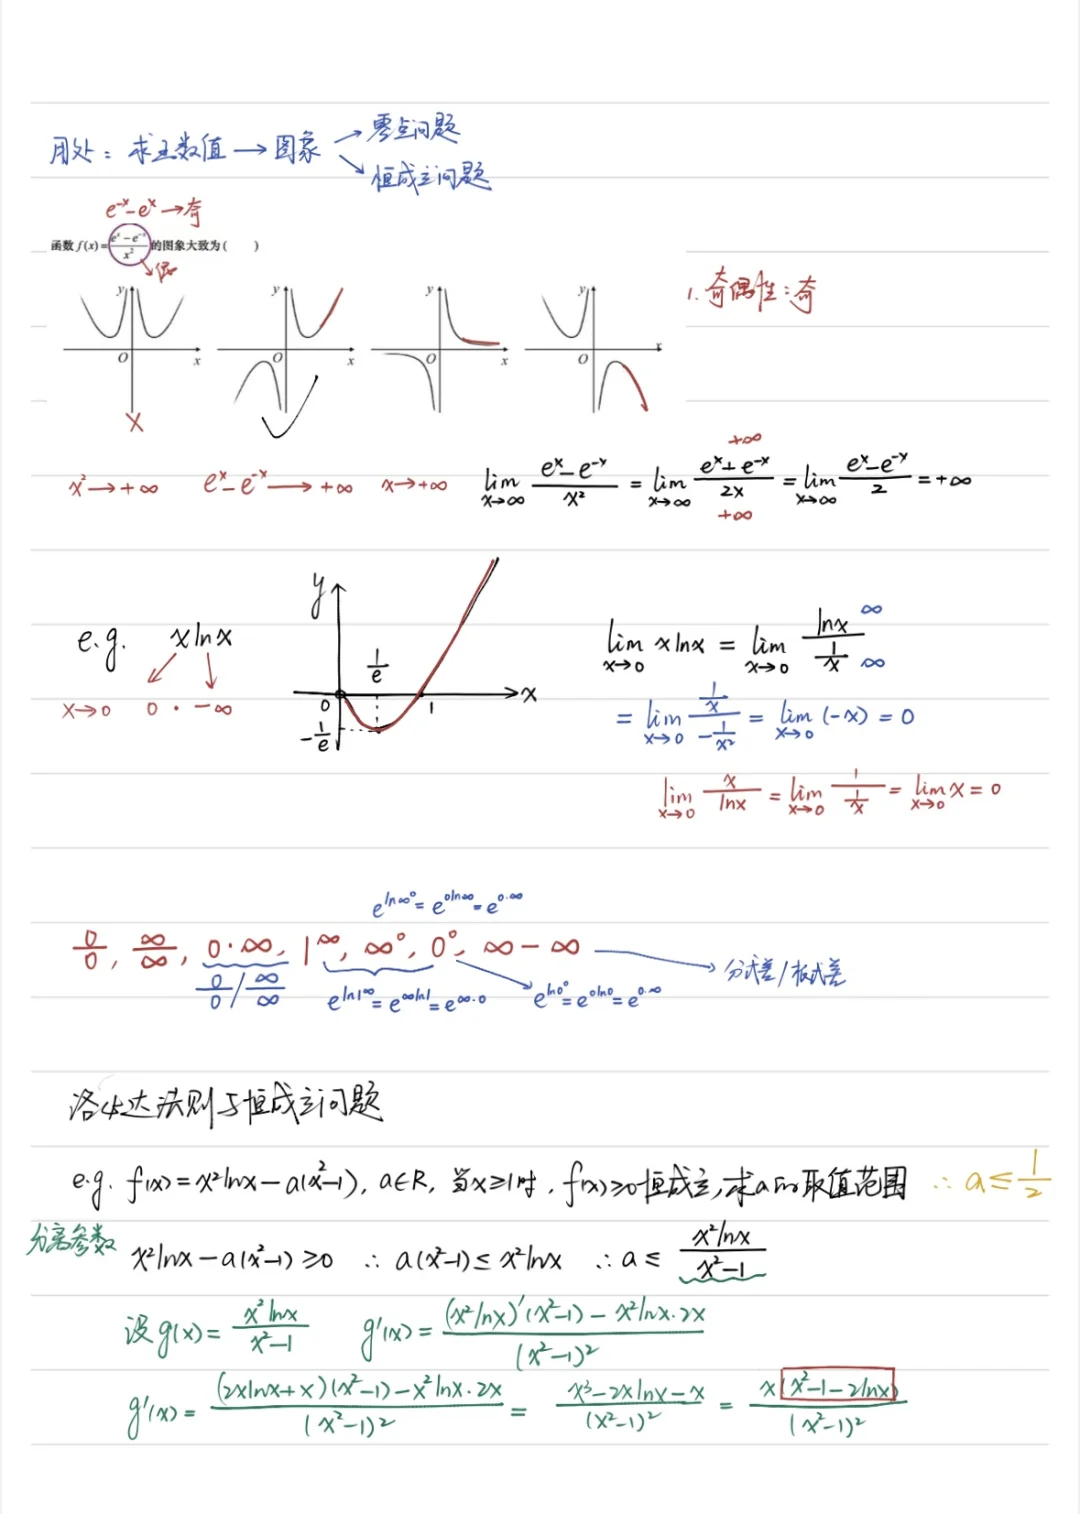 用处：求函数值→图象→零点问题
→恒成立问题
e⁻ˣ-eˣ→奇
函数 f(x)=(eˣ-e⁻ˣ)/x² 的图象大致为( )
→偶
1. 奇偶性：奇
y y y y
O x O x O x O x
X
+∞
x²→+∞ eˣ-e⁻ˣ→+∞ x→+∞ lim x→∞ (eˣ-e⁻ˣ)/x² = lim x→∞ (eˣ+e⁻ˣ)/2x = lim x→∞ (eˣ-e⁻ˣ)/2 = +∞
+∞
y
e.g. xlnx
x→0 0 · -∞
1/e
0 1 x
-1/e
lim x→0 xlnx = lim x→0 lnx/(1/x) ∞ ∞
= lim x→0 (1/x)/(-1/x²) = lim x→0 (-x) = 0
lim x→0 x/lnx = lim x→0 1/(1/x) = lim x→0 x = 0
e^(ln∞⁰) = e^(0ln∞) = e^(0·∞)
0/0, ∞/∞, 0·∞, 1^∞, ∞⁰, 0⁰, ∞-∞ → 分式差/根式差
0/0 / ∞/∞ e^(ln1^∞) = e^(∞ln1) = e^(∞·0) e^(ln0⁰) = e^(0ln0) = e^(0·∞)
洛必达法则与恒成立问题
e.g. f(x)=x²lnx-a(x²-1), a∈R, 当x≥1时, f(x)≥0恒成立,求a的取值范围 ∴ a≤1/2
分离参数 x²lnx-a(x²-1)≥0 ∴ a(x²-1)≤x²lnx ∴ a≤ x²lnx/(x²-1)
设g(x)= x²lnx/(x²-1) g'(x)= ((x²lnx)'(x²-1)-x²lnx·2x)/(x²-1)²
g'(x)= ((2xlnx+x)(x²-1)-x²lnx·2x)/(x²-1)² = (x³-2xlnx-x)/(x²-1)² = x(x²-1-2lnx)/(x²-1)²